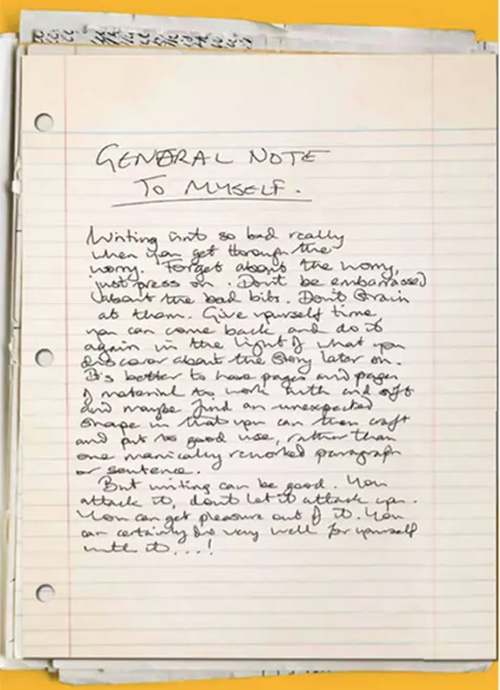 GENERAL NOTE
TO MYSELF.
Writing isn't so bad really
when you get through the
worry. Forget about the worry,
just press on. Don't be embarrassed
about the bad bits. Don't strain
at them. Give yourself time
you can come back and do it
again in the light of what you
discover about the story later on.
It's better to have pages and pages
of material to work with and sift
and maybe find an unexpected
shape in that you can then craft
and put to good use, rather than
one manically reworked paragraph
or sentence.
But writing can be good. You
attack it, don't let it attack you.
You can get pleasure out of it. You
can certainly do very well for yourself
with it...!